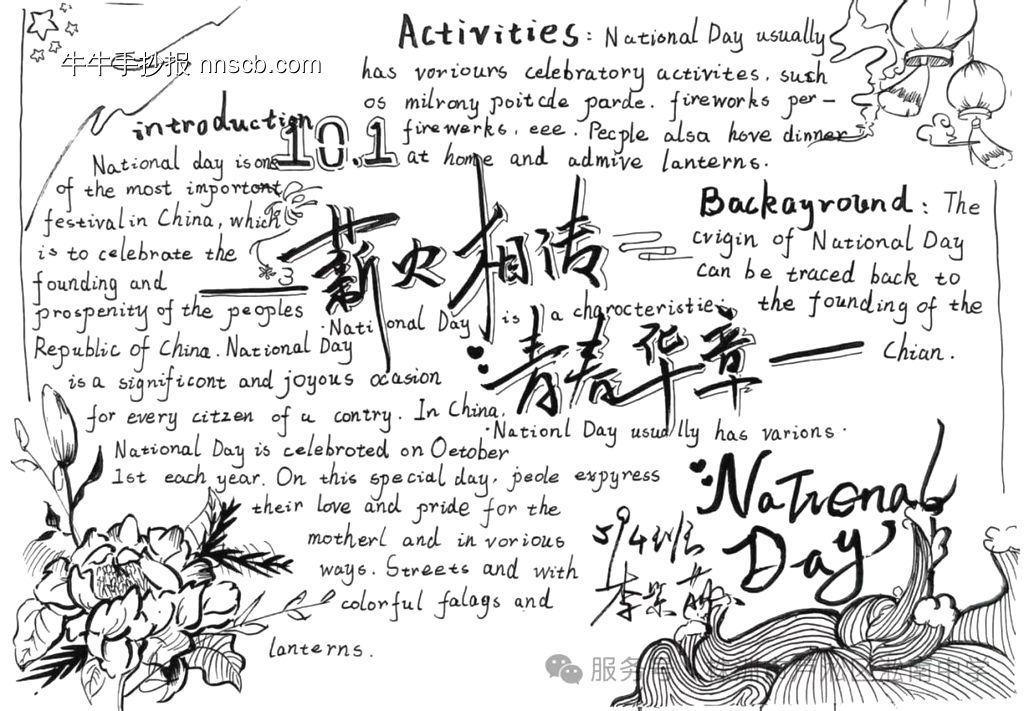 牛牛手抄报 nnscb.com
Activities: National Day usually
has voriours celebratory activites. such
os milrony poitcde parde. fireworks per-
firewerks. eee. Pecple alsa hove dinner
at home and admive lanterns.
introduction
10.1
National day is one
of the most important
festival in China, which
is to celebrate the
founding and
prospenity of the peoples
Republic of China. National Day
is a significont and joyous ocasion
for every citzen of u contry. In China.
National Day is celebroted on Oetober
1st each year. On this special day. peole expyress
their love and pride for the
motherl and in vorious
ways. Streets and with
colorful falags and
lanterns.
薪火相传
·National Day is a charocteristie
青春华章
·Nationl Day usually has varions·
Backayround: The
cvigin of National Day
can be traced back to
the founding of the
Chian.
National
Day
594班
李
服务号
中学